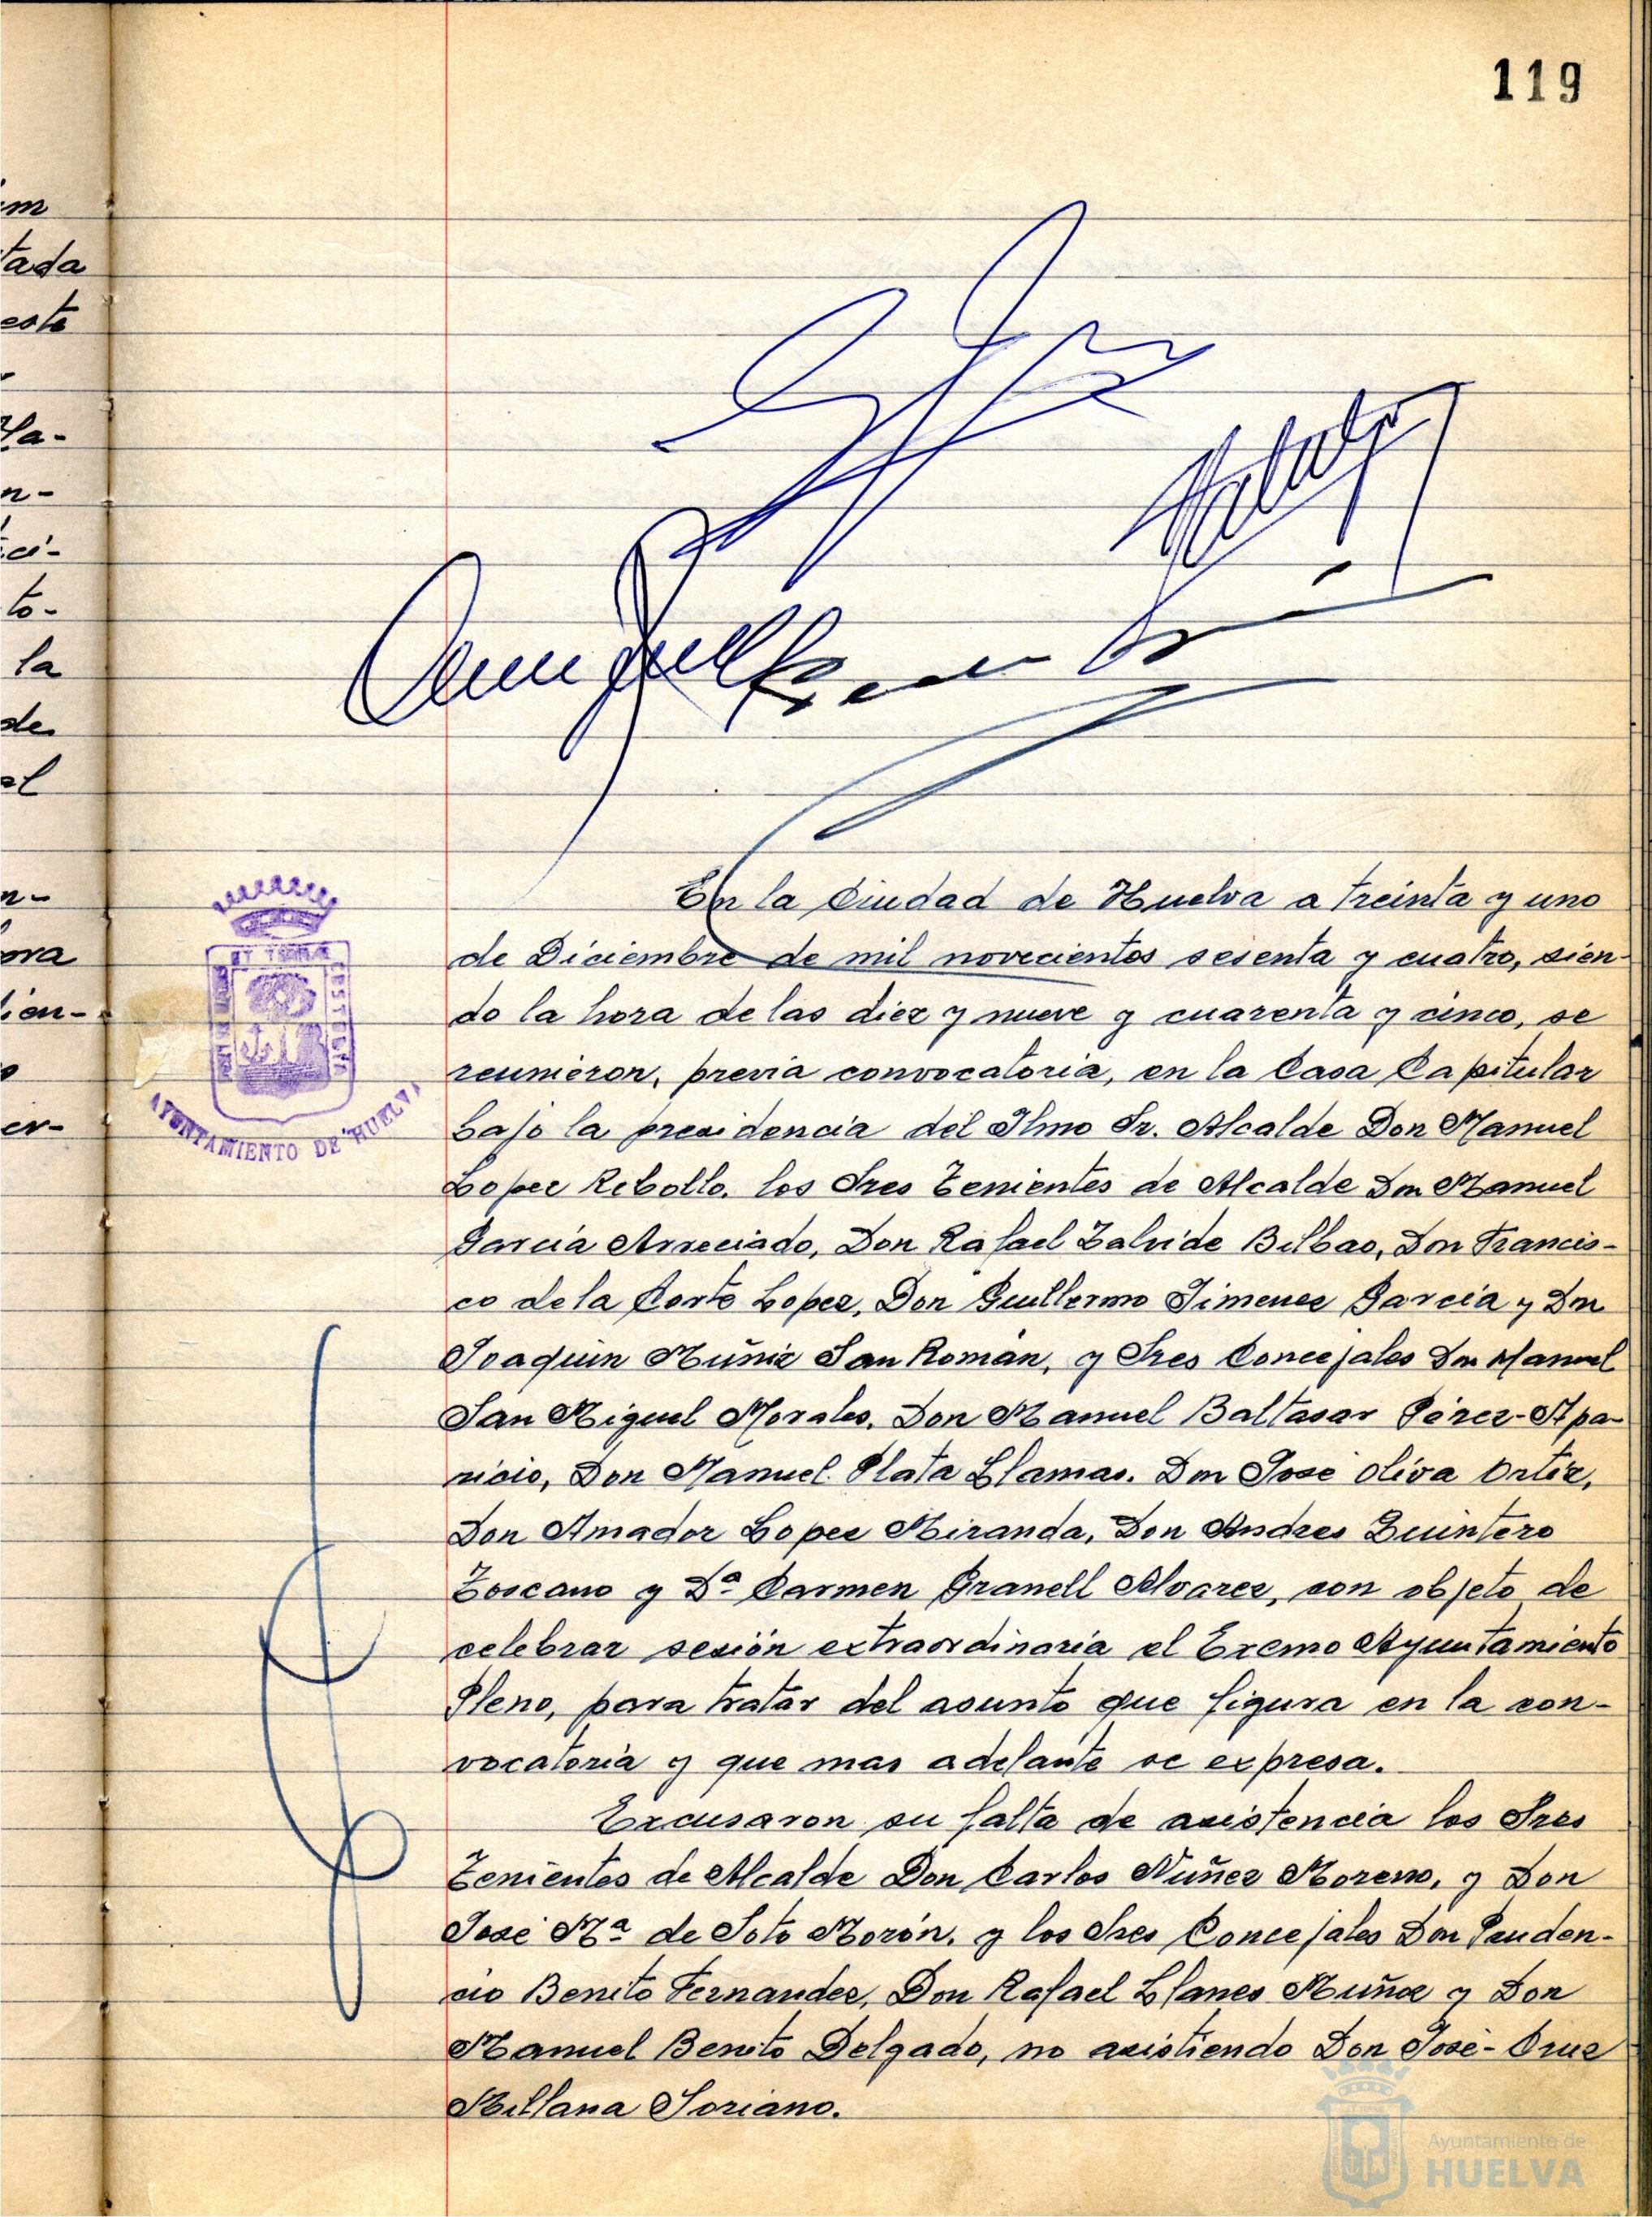 119
im
tada
este
Ha-
n-
ci-
to-
la
de
el
n-
ora
ien-
er-
En la Ciudad de Huelva a treinta y uno
de Diciembre de mil novecientos sesenta y cuatro, sien-
do la hora de las diez y nueve y cuarenta y cinco, se
reunieron, previa convocatoria, en la Casa Capitular
bajo la presidencia del Ilmo Sr. Alcalde Don Manuel
Lopez Rebollo, los Sres Tenientes de Alcalde Don Manuel
Garcia Arreciado, Don Rafael Zalvide Bilbao, Don Francis-
co de la Corte Lopez, Don Guillermo Jimenez Garcia y Don
Joaquin Muñiz San Román, y Sres Concejales Don Manuel
San Miguel Morales, Don Manuel Baltasar Pérez-Apa-
ricio, Don Manuel Plata Llamas, Don José Oliva Ortiz,
Don Amador Lopez Miranda, Don Andres Quintero
Toscano y Dª Carmen Granell Alvarez, con objeto de
celebrar sesión extraordinaria el Excmo Ayuntamiento
Pleno, para tratar del asunto que figura en la con-
vocatoria y que mas adelante se expresa.
Excusaron su falta de asistencia los Sres
Tenientes de Alcalde Don Carlos Nuñez Moreno, y Don
José Mª de Soto Morón, y los Sres Concejales Don Pruden-
cio Benito Fernandez, Don Rafael Llanes Muñoz y Don
Manuel Benito Delgado, no asistiendo Don José-Cruz
Millana Soriano.
AYUNTAMIENTO DE HUELVA
Ayuntamiento de
HUELVA